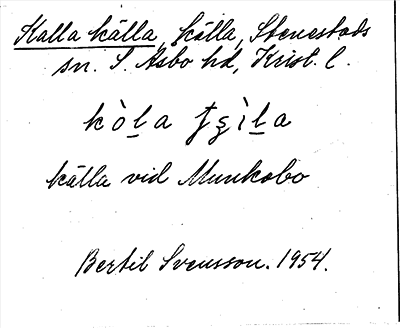 Kalla källa, källa, Stenestads
sn. S. Åsbo hd, Krist. l.
kòl̲a ʈʂìl̲a
källa vid Munkabo
Bertil Svensson. 1954.